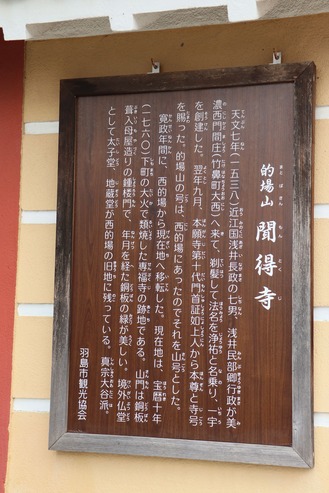 的場山 聞得寺
天文七年(一五三八)近江国浅井長政の七男、浅井民部卿行政が美
濃西門間庄(竹鼻町大西)へ来て、剃髪して法名を浄祐と名乗り、一宇
を創建した。翌年九月、本願寺第十代門首証如上人から本尊と寺号
を賜った。的場山の号は、西的場にあったのでそれを山号とした。
寛政年間に、西的場から現在地へ移転した。現在地は、宝暦十年
(一七六〇)下町の大火で類焼した専福寺の跡地である。山門は銅板
葺入母屋造りの鐘楼門で、年月を経た銅板の緑が美しい。境外仏堂
として太子堂、地蔵堂が西的場の旧地に残っている。真宗大谷派。
羽島市観光協会